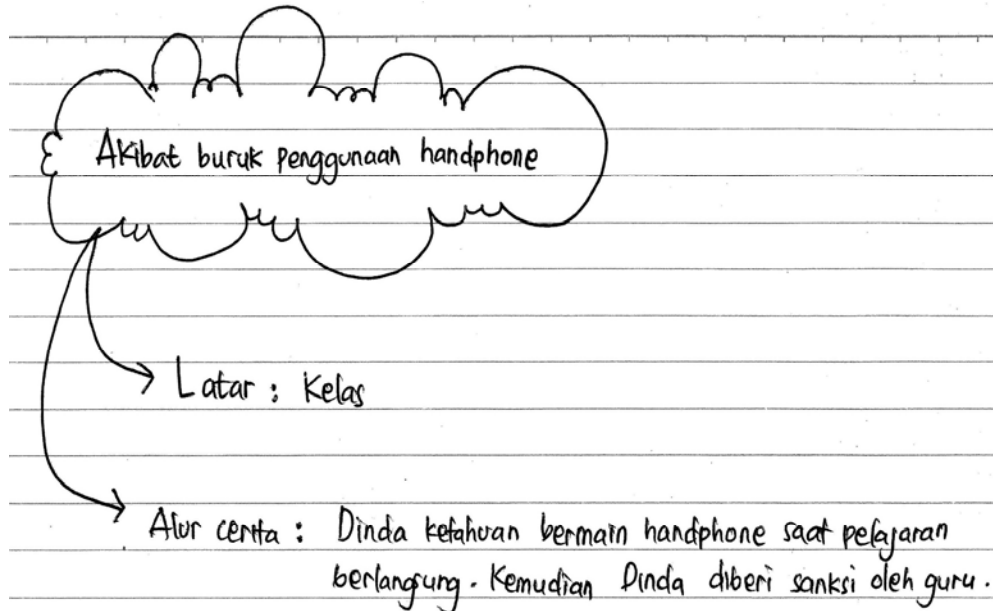 Akibat buruk penggunaan handphone
Latar : Kelas
Alur cerita : Dinda ketahuan bermain handphone saat pelajaran
berlangsung. Kemudian Dinda diberi sanksi oleh guru.